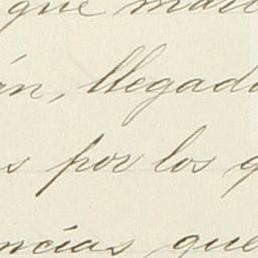 que man
án, llegado
s por los q
ncias que